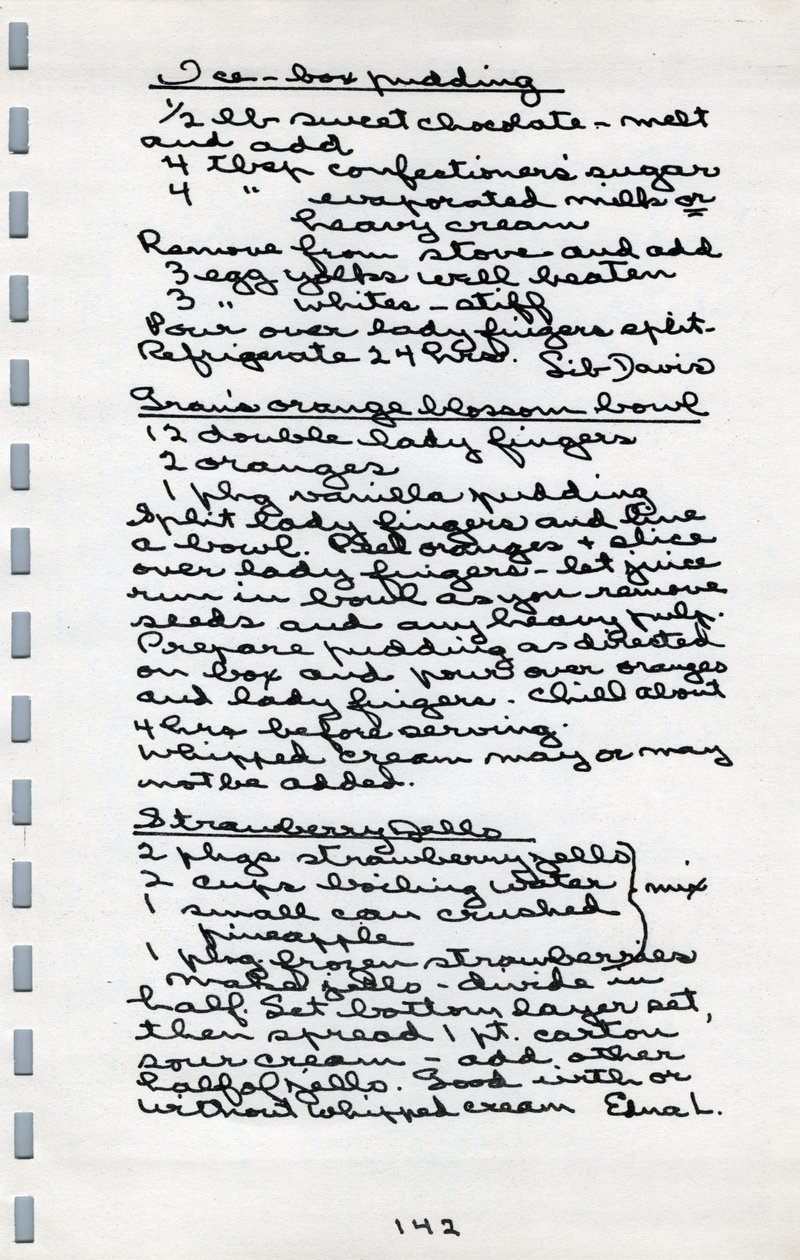 Ice-box pudding
1/2 lb sweet chocolate - melt
and add
4 tbsp confectioner's sugar
4 " evaporated milk or
heavy cream
Remove from stove and add
3 egg yolks well beaten
3 " whites - stiff
Pour over lady fingers split-
Refrigerate 24 hrs. Sib Davis
Gran's orange blossom bowl
12 double lady fingers
2 oranges
1 pkg vanilla pudding
Split lady fingers and line
a bowl. Peel oranges + slice
over lady fingers - let juice
run in bowl as you remove
seeds and any heavy pulp.
Prepare pudding as directed
on box and pour over oranges
and lady fingers. Chill about
4 hrs before serving.
Whipped cream may or may
not be added.
Strawberry Jello
2 pkgs strawberry jello
2 cups boiling water } mix
1 small can crushed
pineapple
1 pkg. frozen strawberries
Make jello - divide in
half. Set bottom layer set,
then spread 1 pt. carton
sour cream - add other
half of jello. Good with or
without whipped cream Edna L.
142